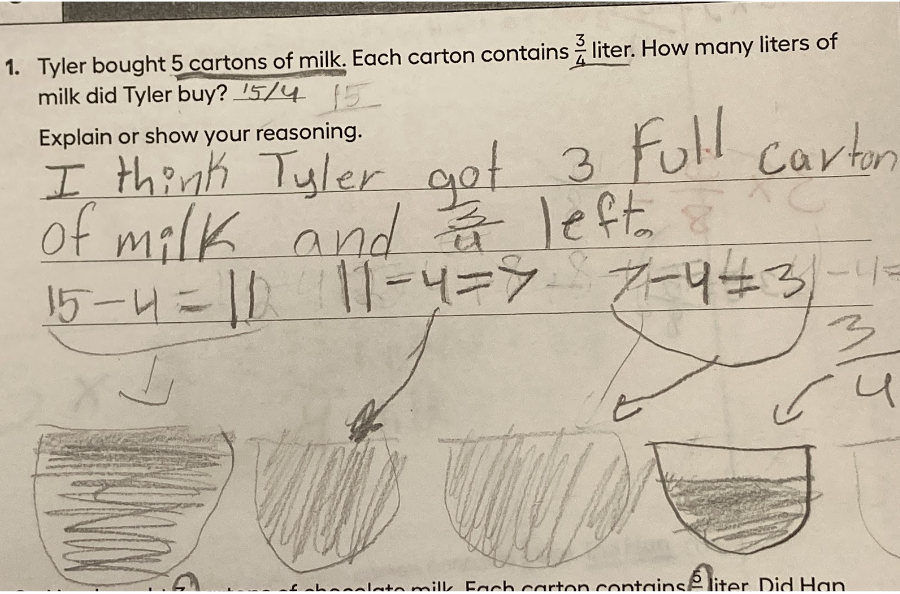 1. Tyler bought 5 cartons of milk. Each carton contains 3/4 liter. How many liters of
milk did Tyler buy? 15/4 15
Explain or show your reasoning.
I think Tyler got 3 Full carton
of milk and 3/4 left.
15-4=11 11-4=7 7-4=3
3/4
of chocolate milk. Each carton contains liter. Did Han